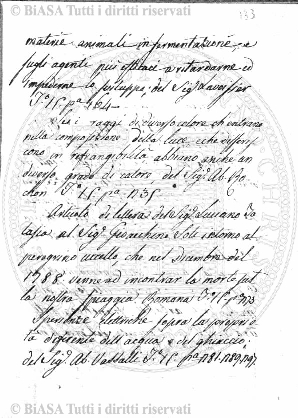 © BiASA Tutti i diritti riservati
133
materie animali in fermentazione, e
sugli agenti più efficaci a ritardarne ed
impedirne lo sviluppo; del Sig. Lavoisier
T. 15 pa. 164
Se i raggi di diverso colore ch'entrano
nella composizione della luce, e ch' differis
cono in refrangibilità abbiano anche un
diverso grado di calore del Sig. Ab. Ro
chon T. 15 pa. 1735
Articolo di lettera del Sig. Luciano
al Sig. Gioacchino intorno al
peregrino uccello che nel Dicembre del
1788. venne ad incontrar la morte sul
la nostra spiaggia Romana T. 15 pa.
Sperienze elettriche sopra la proprie
tà deferente dell'acqua, e del ghiaccio;
del Sig. Ab. Vassalli T. 15 pa. 1781. 1789. 1797.
© BiASA Tutti i diritti riservati